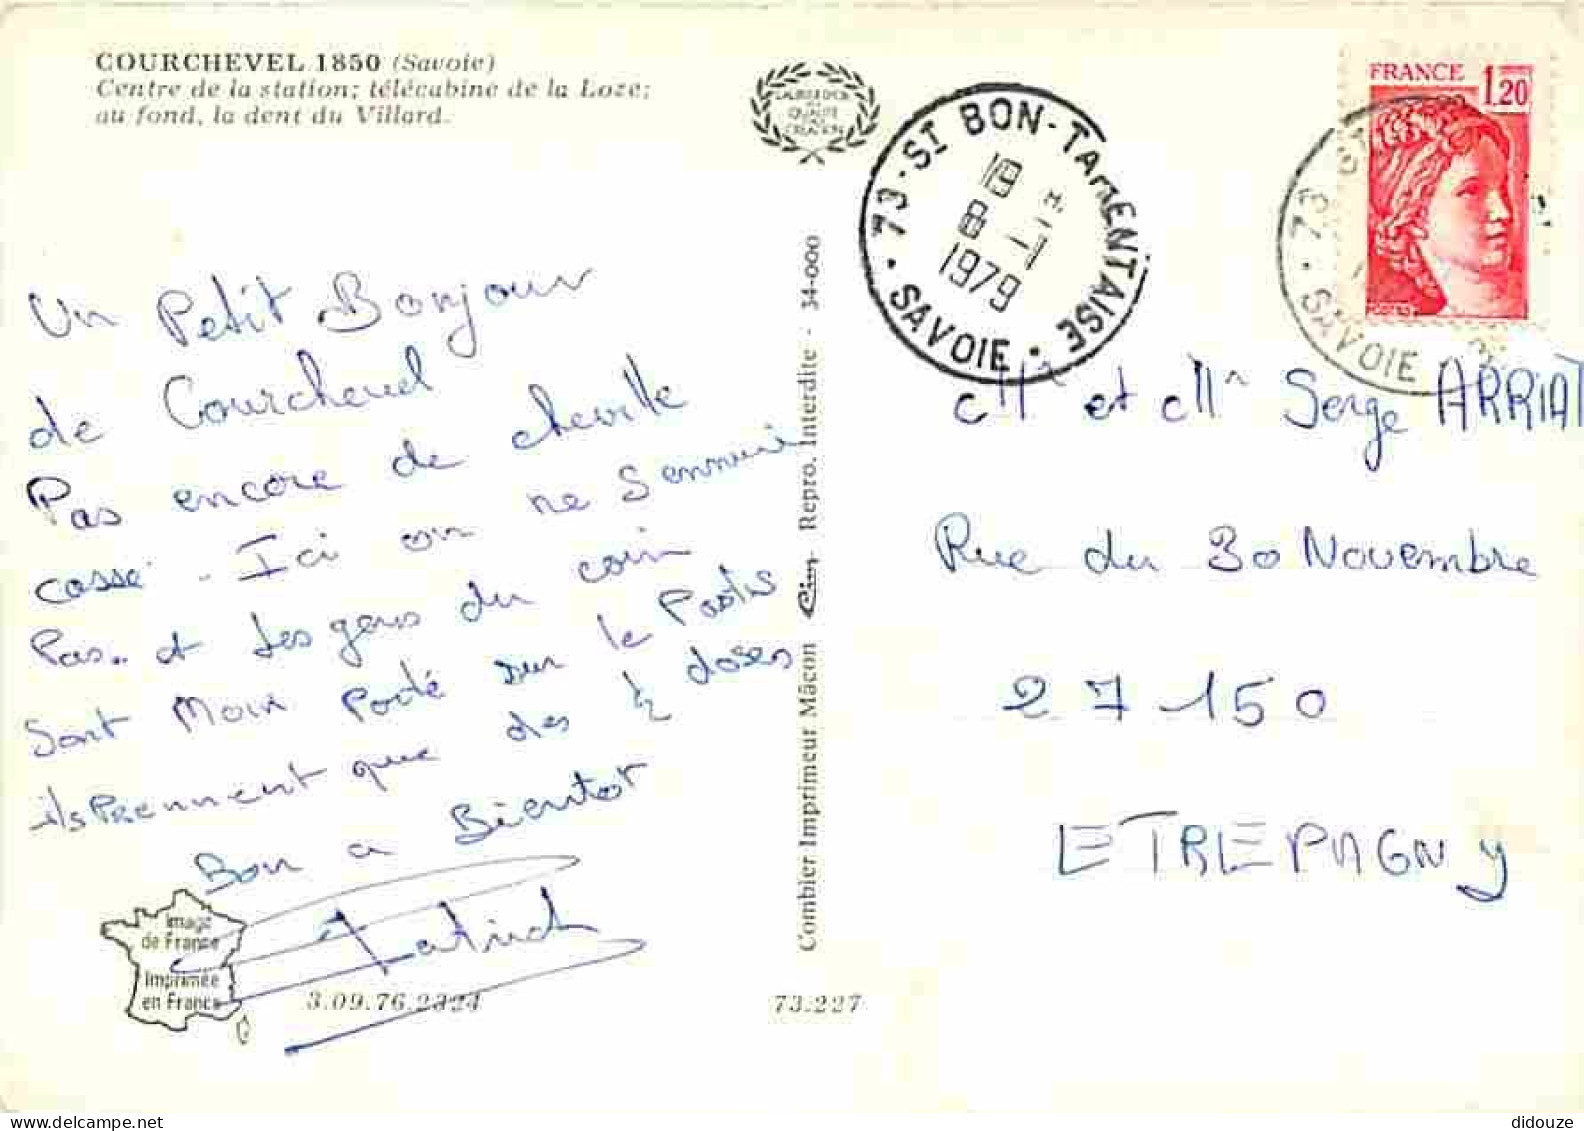 COURCHEVEL 1850 (Savoie)
Centre de la station; télécabine de la Loze;
au fond, la dent du Villard.
LABEL D'OR
QUALITÉ
CRÉATION
73 - ST BON - TARENTAISE
18 H
8 - 1
1979
SAVOIE
FRANCE 1,20
POSTES
73 ST
SAVOIE
Un Petit Bonjour
de Courchevel
Pas encore de cheville
cassé. Ici on ne s'ennuie
Pas.. et les gens du coin
Sont Moin Porté sur le Pastis
ils Prennent que des ½ doses
Bon a Bientot
Patrick
Mr et Mm Serge ARRIAT
Rue du 30 Novembre
27150
ETREPAGNY
Combier Imprimeur Mâcon Cim Repro. Interdite - 34-000
Image
de France
Imprimée
en France
3.09.76.2324
73.227
didouze